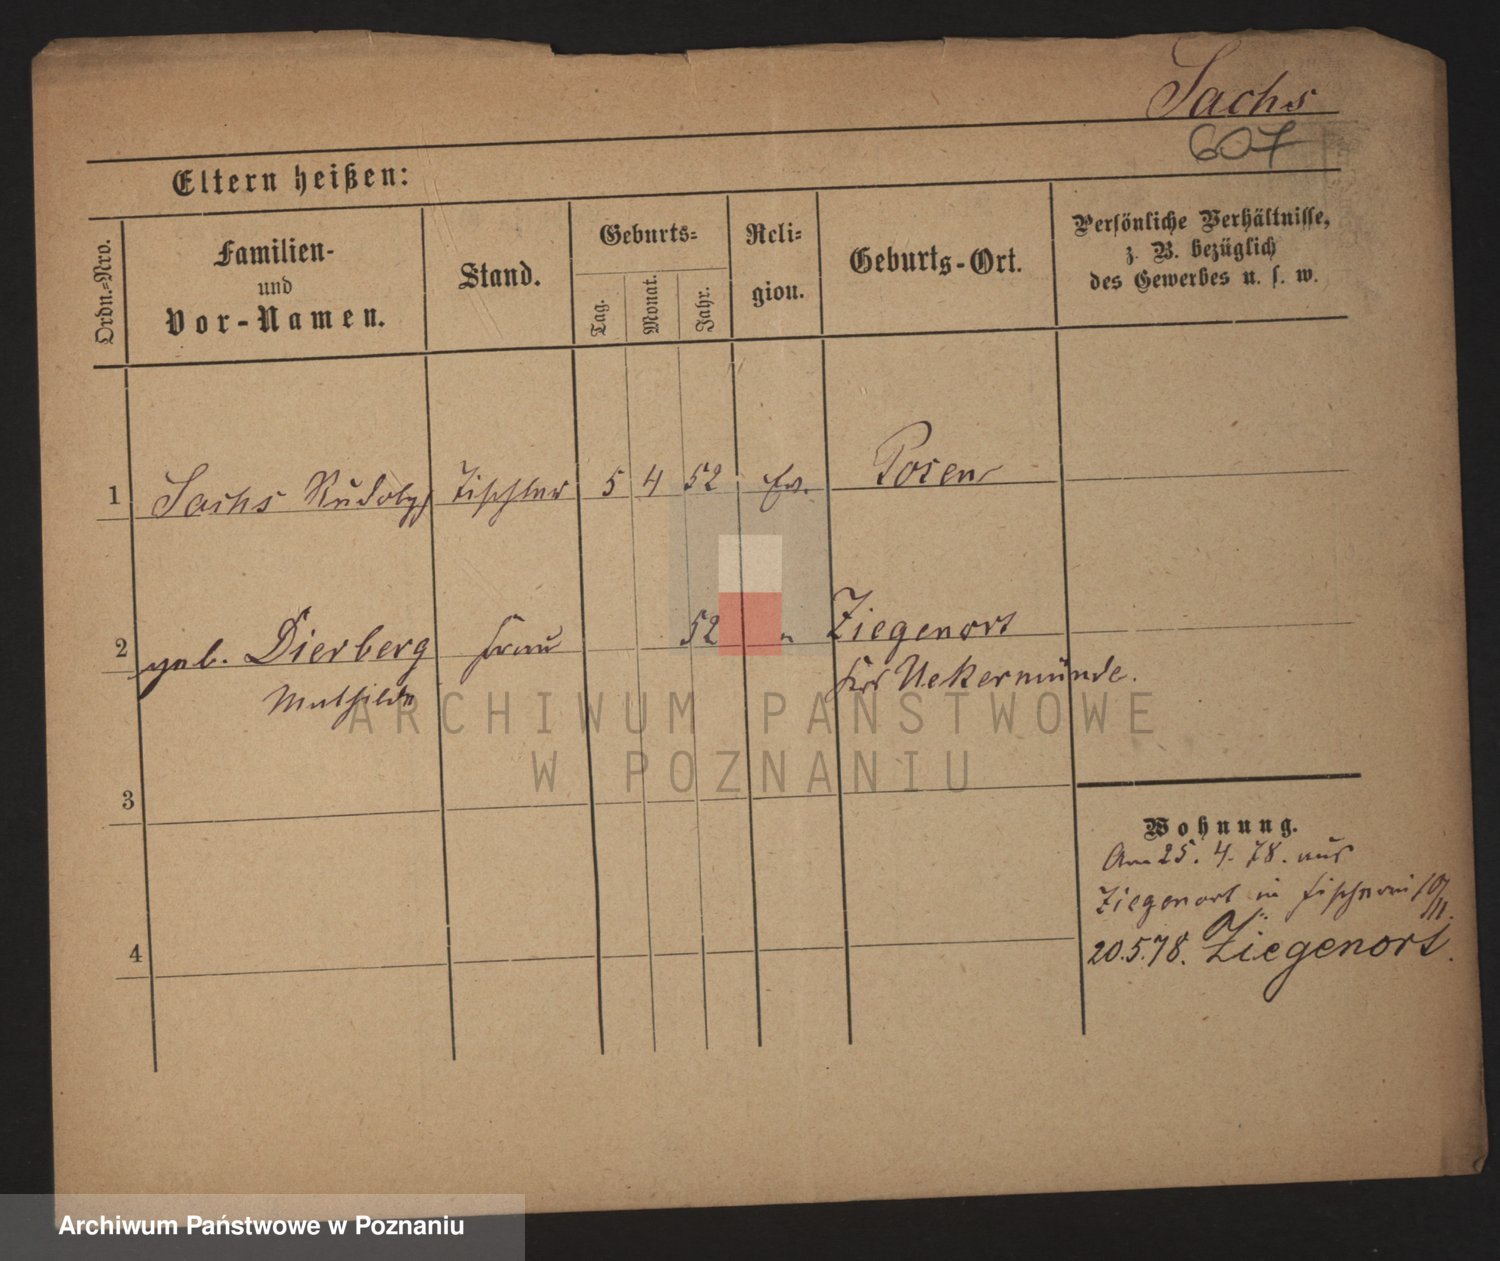 Sachs
607
Eltern heißen:
Ordn.=Nro.
Familien-
und
Vor-Namen.
Stand.
Geburts=
Tag.
Monat.
Jahr.
Reli=
gion.
Geburts-Ort.
Persönliche Verhältnisse,
z. B. bezüglich
des Gewerbes u. s. w.
1 Sachs Rudolph Tischler 5 4 52 Ev. Posen
2 geb. Dierberg Frau 52 " Ziegenort
Mathilde Krs Uekermünde.
3
4
Wohnung.
Am 25. 4. 78. aus
Ziegenort in Fischerei 10/11.
20.5.78. Ziegenort.
ARCHIWUM PAŃSTWOWE
W POZNANIU
Archiwum Państwowe w Poznaniu